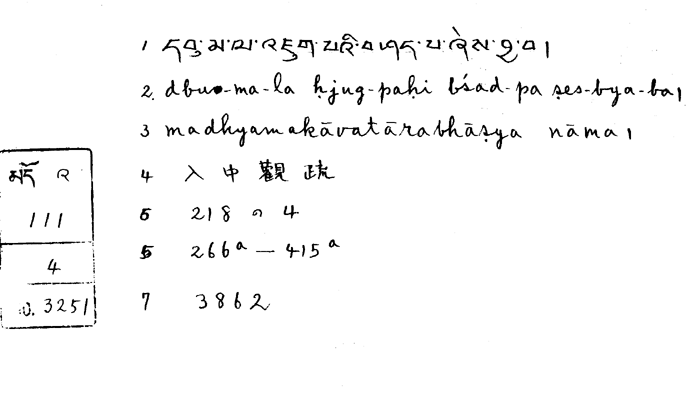 1 དབུ་མ་ལ་འཇུག་པའི་བཤད་པ་ཞེས་བྱ་བ།
2. dbu-ma-la ḥjug-paḥi bśad-pa ṣes-bya-ba|
3 madhyamakāvatārabhāṣya nāma|
4 入中觀疏
5 218の4
5 266ᵃ—415ᵃ
7 3862
མདོ འ
111
4
3251